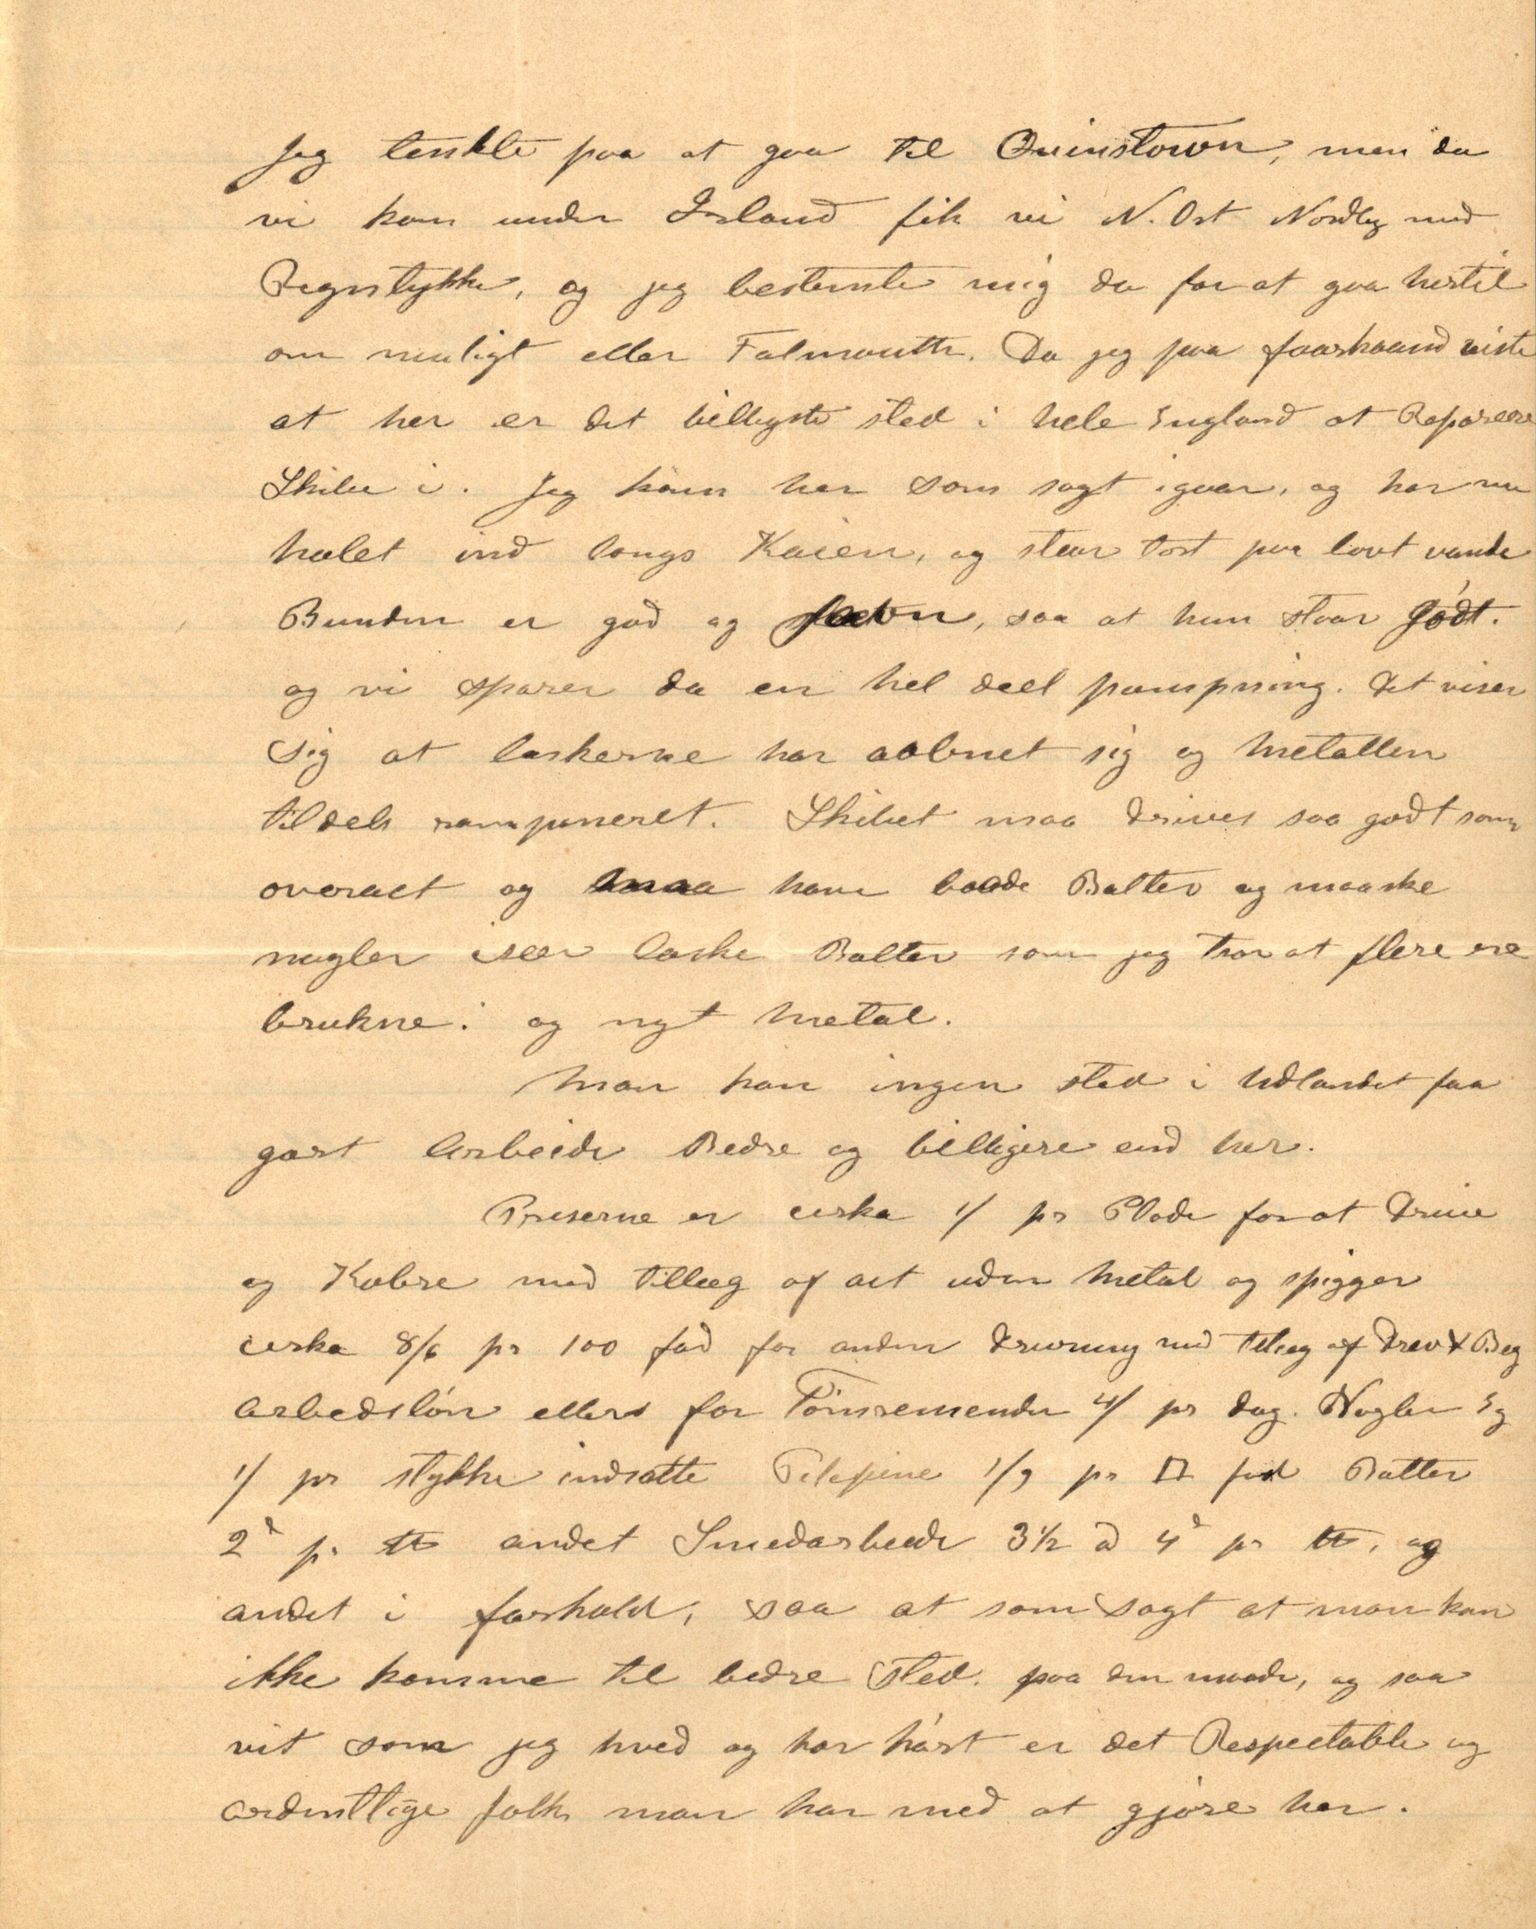 Jeg tenkte paa at gaa til Quinstown, men da
vi kom under Irland fik vi N. Ost Nordlig med
Regnstykke, og jeg bestemte mig da for at gaa hertil
om muligt eller Falmouth. Da jeg paa faarhaand viste
at her er det billigste sted i hele England at Reparere
Skibe i. Jeg kom her som sagt igaar, og har nu
halet ind langs Kaien, og staar tørt paa lavt vande
Bunden er god og jævn, saa at hun staar gódt.
og vi sparer da en hel deel pumpning. Det viser
sig at laskerne har aabnet sig og Metallen
tildels ramponeret. Skibet maa drives saa godt som
overalt og maa have baade Bolter og maaske
nagler især laske Bolter som jeg tror at flere ere
brukne. og nyt Metal.
Man kan ingen sted i Udlandet faa
gjort Arbeide Bedre og billigere end her.
Priserne er cirka 1/ pr Plade for at Drive
og Kobre med tillæg af alt uden Metal og spigger
cirka 8/6 pr 100 fod for anden drivning med tillæg af Drev & Beg
Arbedslón ellers for Tómremænder 4/ pr dag. Nagler Eg
1/ pr stykke indsatte Pitchpine 1/9 pr □ fod Bolter
2d pr ℔ andet Smedarbeide 3 1/2 à 4d pr ℔, og
andet i forhold, saa at som sagt at man kan
ikke komme til bedre sted. paa den maade, og saa
vit som jeg hved og har hórt er det Respectable og
ordentlige folk man har med at gjóre her.